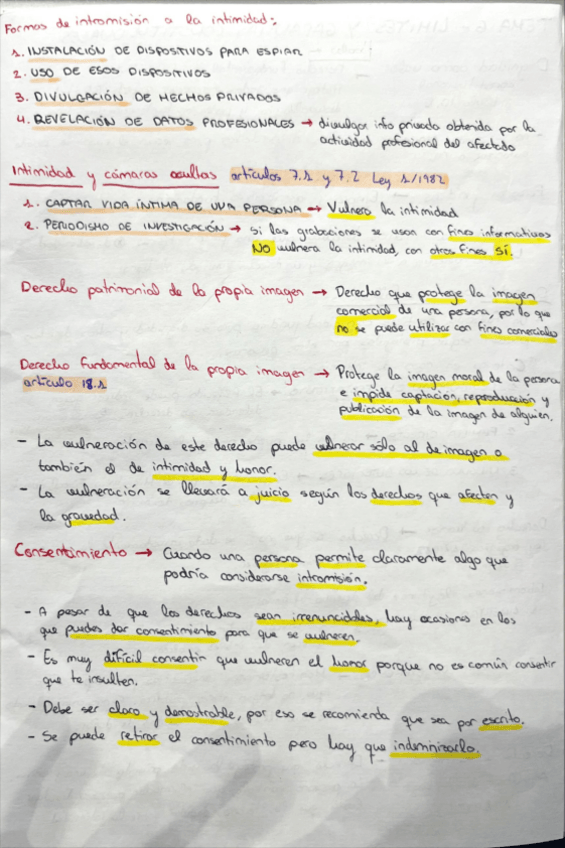 Formas de intromisión a la intimidad:
1. INSTALACIÓN DE DISPOSITIVOS PARA ESPIAR
2. USO DE ESOS DISPOSITIVOS
3. DIVULGACIÓN DE HECHOS PRIVADOS
4. REVELACIÓN DE DATOS PROFESIONALES → divulgar info privada obtenida por la
actividad profesional del afectado
Intimidad y cámaras ocultas artículos 7.1 y 7.2 Ley 1/1982
1. CAPTAR VIDA ÍNTIMA DE UNA PERSONA → Vulnera la intimidad
2. PERIODISMO DE INVESTIGACIÓN → si las grabaciones se usan con fines informativos
NO vulnera la intimidad, con otros fines sí.
Derecho patrimonial de la propia imagen → Derecho que protege la imagen
comercial de una persona, por lo que
no se puede utilizar con fines comerciales
Derecho fundamental de la propia imagen → Protege la imagen moral de la persona
artículo 18.1
e impide captación, reproducción y
publicación de la imagen de alguien.
- La vulneración de este derecho puede vulnerar sólo al de imagen o
también el de intimidad y honor.
- La vulneración se llevará a juicio según los derechos que afecten y
la gravedad.
Consentimiento → Cuando una persona permite claramente algo que
podría considerarse intromisión.
- A pesar de que los derechos sean irrenunciables, hay ocasiones en los
que puedes dar consentimiento para que se vulneren.
- Es muy difícil consentir que vulneren el honor porque no es común consentir
que te insulten.
- Debe ser claro y demostrable, por eso se recomienda que sea por escrito.
- Se puede retirar el consentimiento pero hay que indemnizarlo.